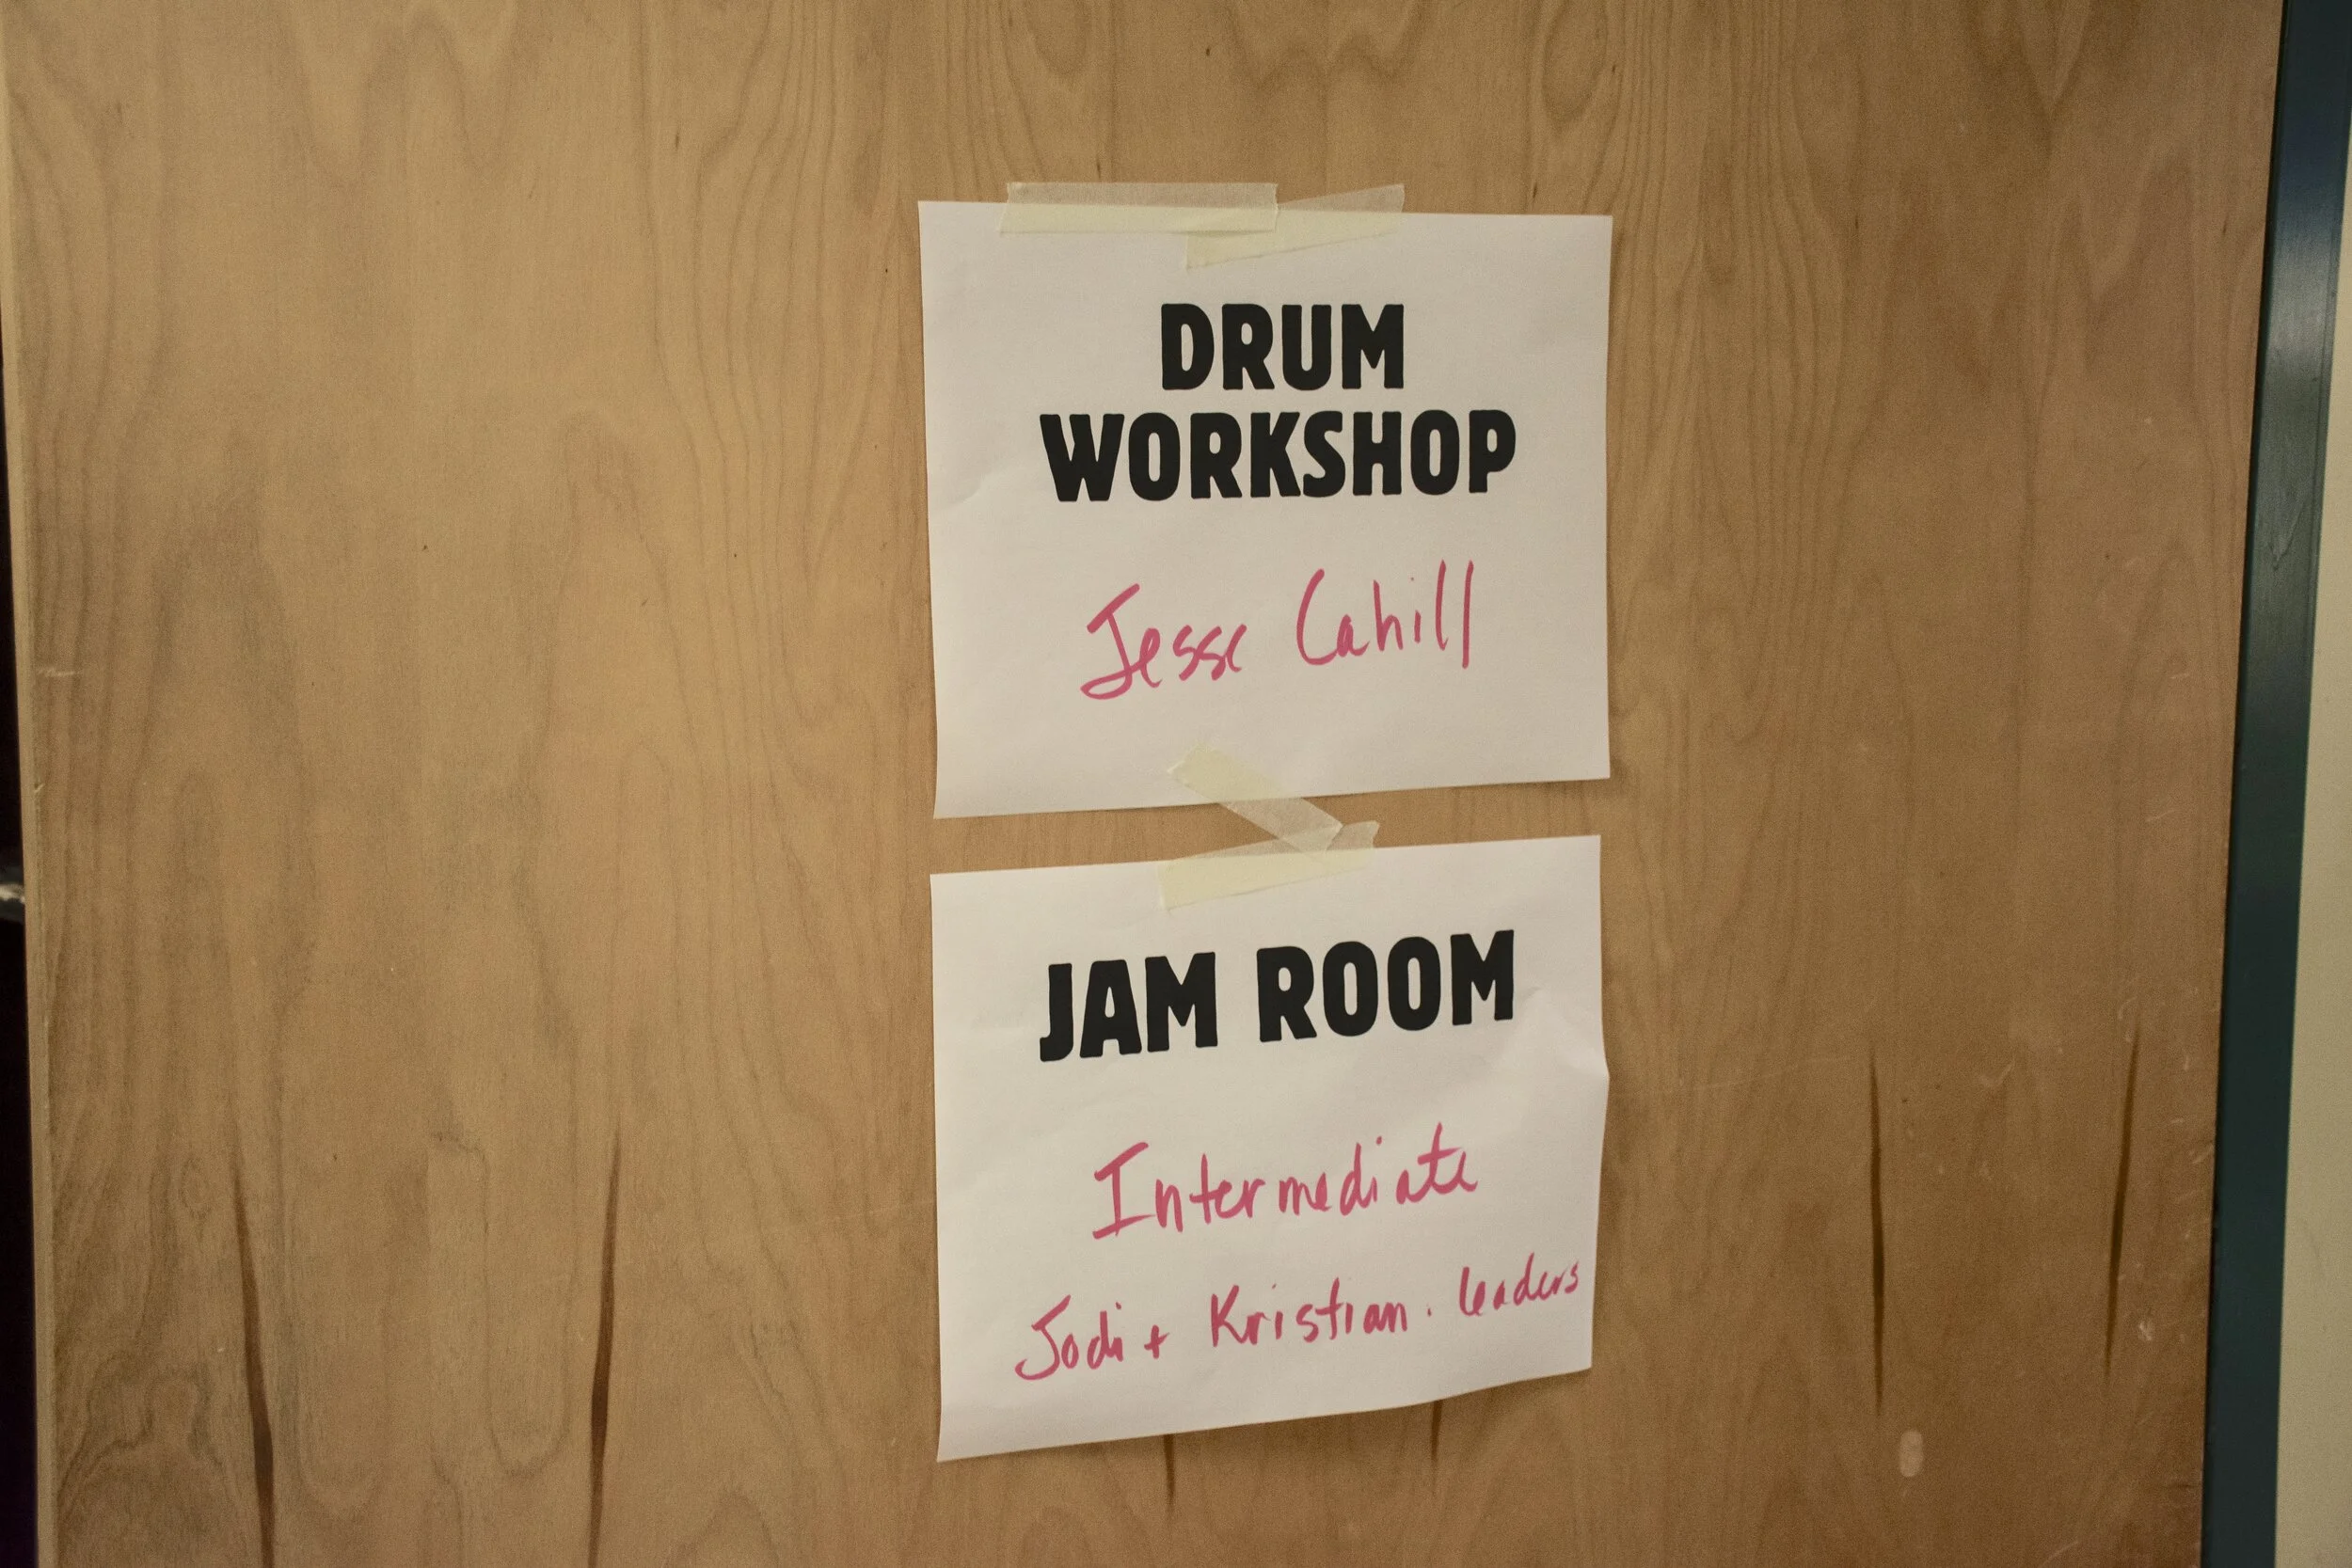 DRUM
WORKSHOP
Jesse Cahill
JAM ROOM
Intermediate
Jodi + Kristian. leaders